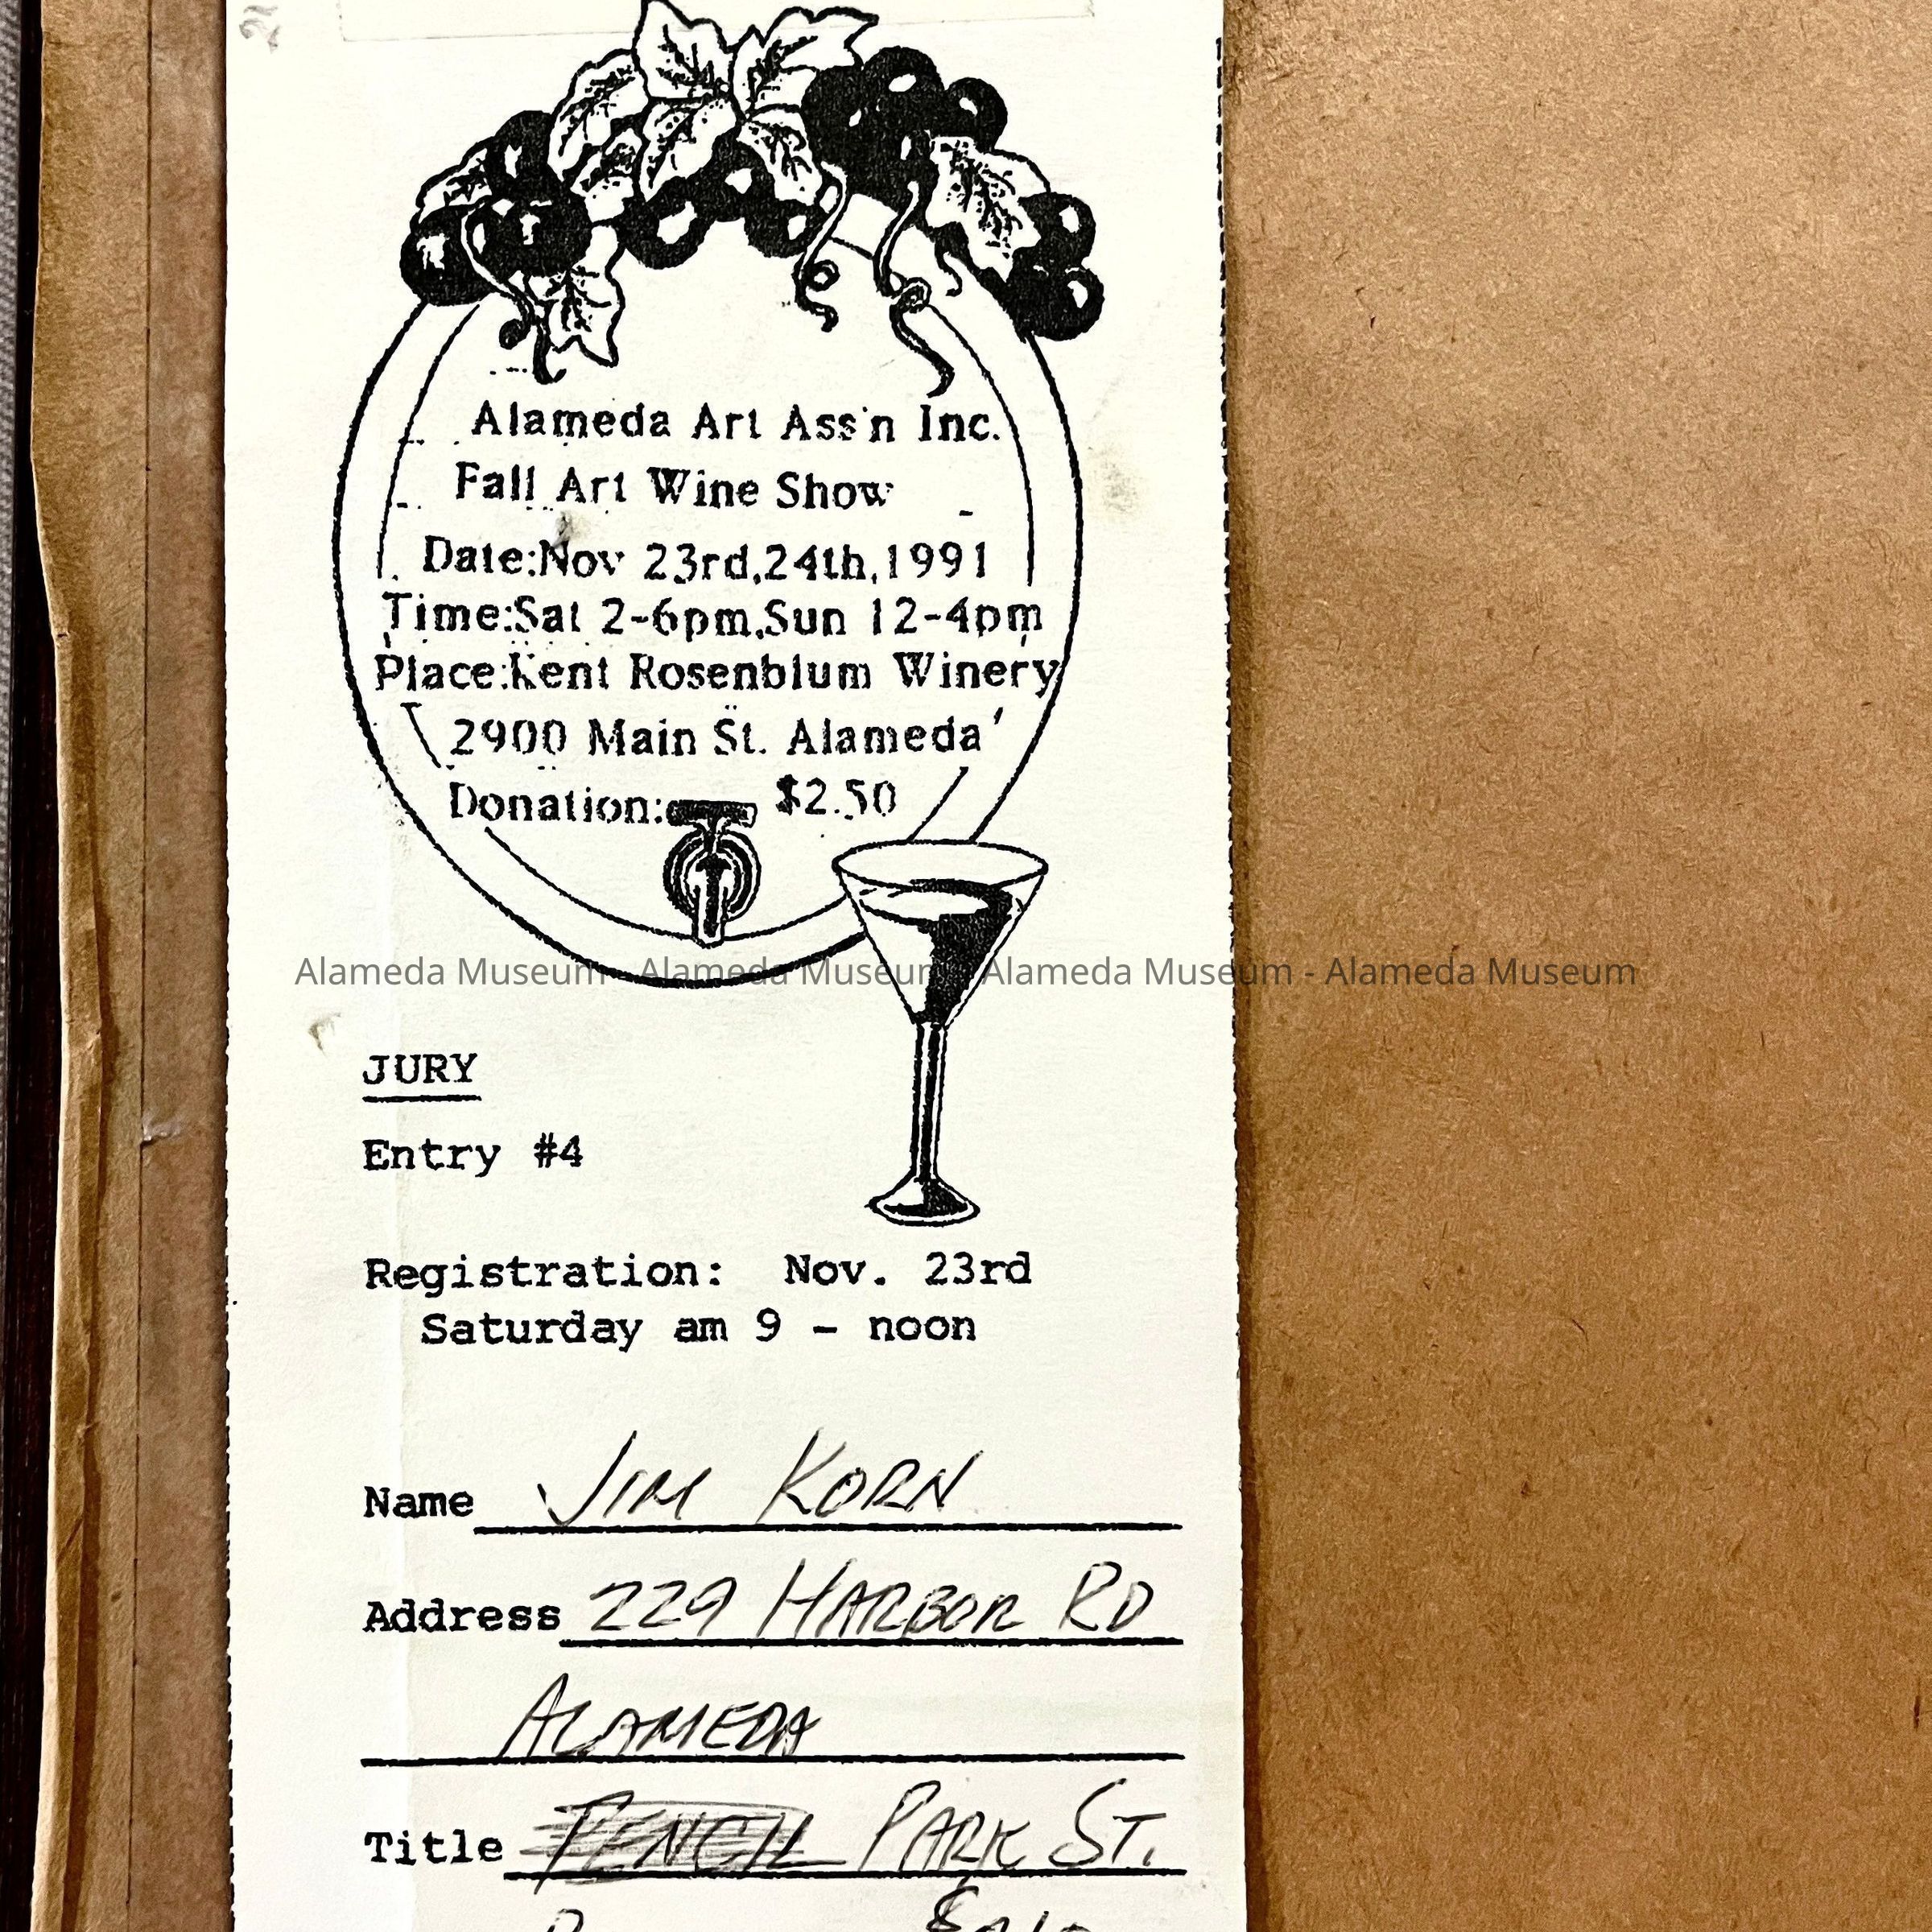 Alameda Art Ass'n Inc.
Fall Art Wine Show
Date:Nov 23rd,24th,1991
Time:Sat 2-6pm,Sun 12-4pm
Place:Kent Rosenblum Winery
2900 Main St. Alameda
Donation: $2.50
Alameda Museum - Alameda Museum - Alameda Museum - Alameda Museum
JURY
Entry #4
Registration: Nov. 23rd
Saturday am 9 - noon
Name JIM KORN
Address 229 HARBOR RD
ALAMEDA
Title PENCIL PARK ST.